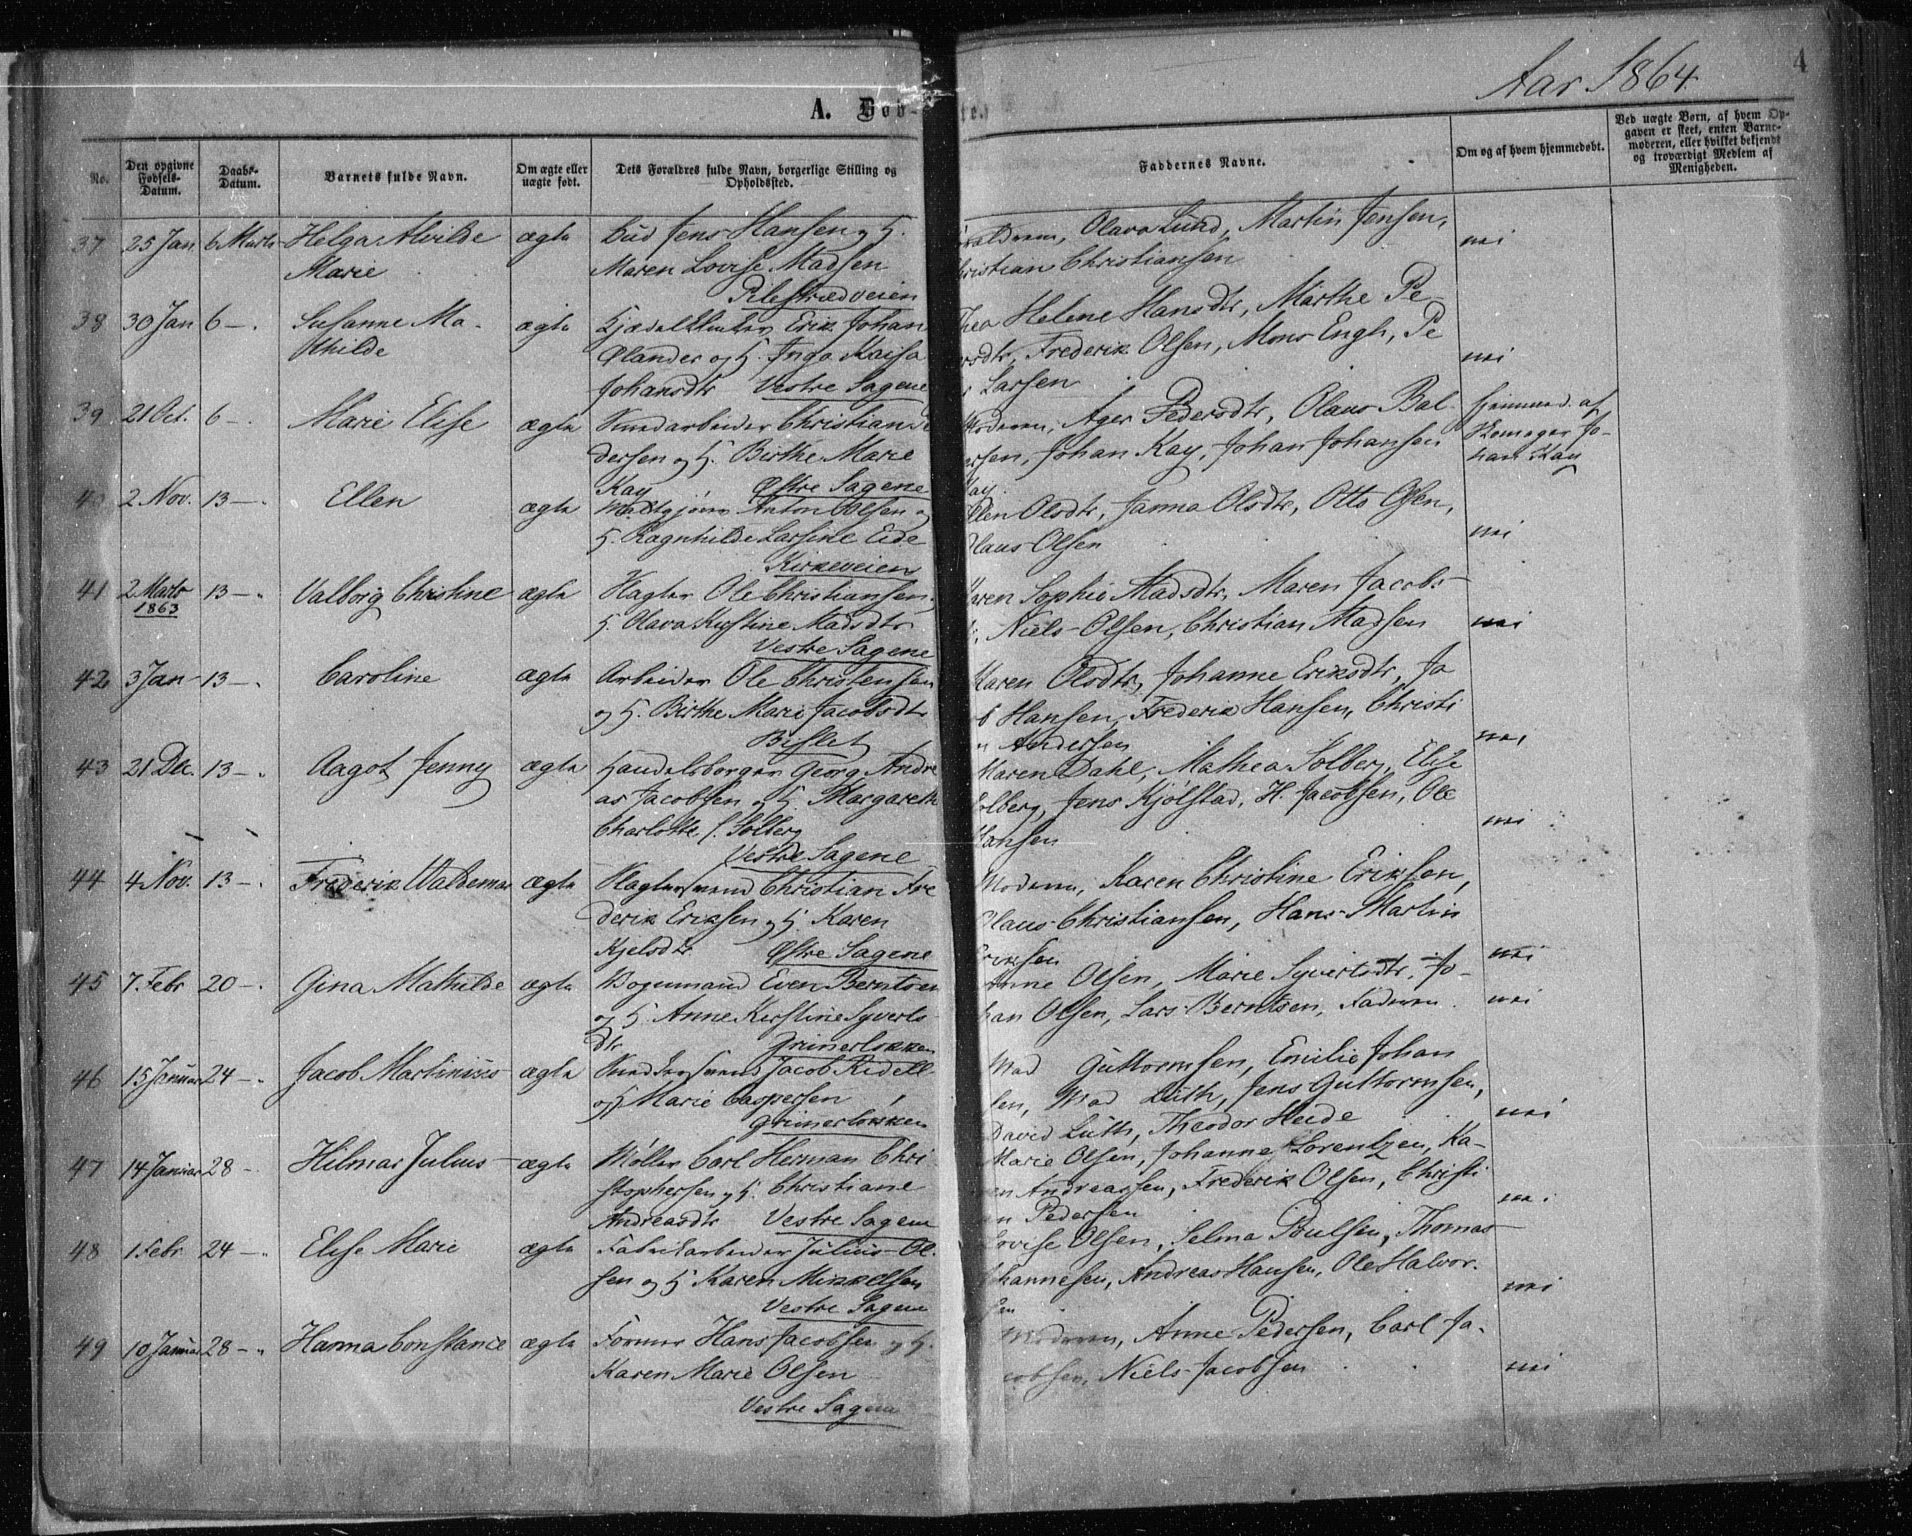 Aar 1864.
4
A. Døb- te.
No.
Den opgivne Fødsels-Datum.
Daabs-Datum.
Barnets fulde Navn.
Om ægte eller uægte født.
Dets Forældres fulde Navn, borgerlige Stilling og Opholdssted.
Faddernes Navne.
Om og af hvem hjemmedøbt.
Ved uægte Børn, af hvem Opgaven er skeet, enten Barnemoderen, eller hvilket bekjendt og troværdigt Medlem af Menigheden.
37 25 Jan 6 Marts Helga Alvilde ægte Bud Jens Hansen og H. Olava Lund, Martin Jensen, nei
Marie Maren Lovise Madsen Christian Christiansen
Pilestrædveien
38 30 Jan 6 – Susanne Ma- ægte Erik Johan Thea Helene Hansdtr, Marthe Pe-
thilde Ølander og H. Inga Kaisa Frederik Olsen, Mons Engh, Pe nei
Johansdtr Vestre Sagene Larsen
39 21 Oct. 6 – Marie Elise ægte Christian Pe Moderen, Pedersdtr, Olaus Bal- hjemmed. af
dersen og H. Birthe Marie ersen, Johan Kay, Johan Johansen Skomager Jo-
Kay Østre Sagene Kay han Kay
40 2 Nov. 13 – Ellen ægte Anton Olsen og Ellen Olsdtr, Janna Olsdtr, Otto Olsen,
H. Ragnhilde Larsine Eide Olaus Olsen nei
Kirkeveien
41 2 Marts 13 – Valborg Christine ægte Ole Christiansen, Karen Sophie Madsdtr, Maren Jacobs-
1863 H. Olava Kirstine Madsdtr Niels Olsen, Christian Madsen nei
Vestre Sagene
42 3 Jan 13 – Caroline ægte Arbeider Ole Christensen Karen Olsdtr, Johanne Eriksdtr, Ja
og H. Birthe Marie Jacobsdtr ob Hansen, Frederik Hansen, Christi
Bislet n Andersen nei
43 21 Dec. 13 – Aagot Jenny ægte Handelsborger Georg Andre Maren Dahl, Mathea Solberg, Elise
as Jacobsen og H. Margarethe olberg, Jens Kjølstad, H. Jacobsen, Ole nei
Charlotte f. Solberg Hansen
Vestre Sagene
44 4 Nov. 13 – Frederik Waldemar ægte Christian Fre Moderen, Karen Christine Eriksen,
derik Eriksen og H. Karen Olaus Christiansen, Hans Martin
Kjelsdtr Østre Sagene Eriksen nei
45 7 Febr 20 – Gina Mathilde ægte Vognmand Even Berntsen Anne Olsen, Marie Syvertsdtr, Jo-
og H. Anne Kirstine Syverts- han Olsen, Lars Berntsen, Faderen. nei
dtr Grünerløkken
46 15 Januar 24 – Jacob Martinius ægte Jacob Ridell Mad Guttormsen, Emilie Johan
og H Marie Caspersen sen, Mad Lüth, Jens Guttormsen, nei
Grünerløkken David Lüth, Theodor Heide
47 14 Januar 28 – Hilmar Julius ægte Møller Carl Herman Chri Marie Olsen, Johanne Lorentzen, Ka-
stophersen og H. Christiane en Andreassen, Frederik Olsen, Christi nei
Andreasdtr Vestre Sagene an Pedersen
48 1 Febr 24 – Elise Marie ægte Fabrikarbeider Julius Ol- Lovise Olsen, Selma Poulsen, Thomas
sen og H Karen Mikkelsen Johannesen, Andreas Hansen, Ole Halvor- nei
Vestre Sagene sen
49 10 Januar 28 – Hanna Constance ægte Former Hans Jacobsen og H. Moderen, Anne Pedersen, Carl Ja-
Karen Marie Olsen cobsen, Niels Jacobsen nei
Vestre Sagene